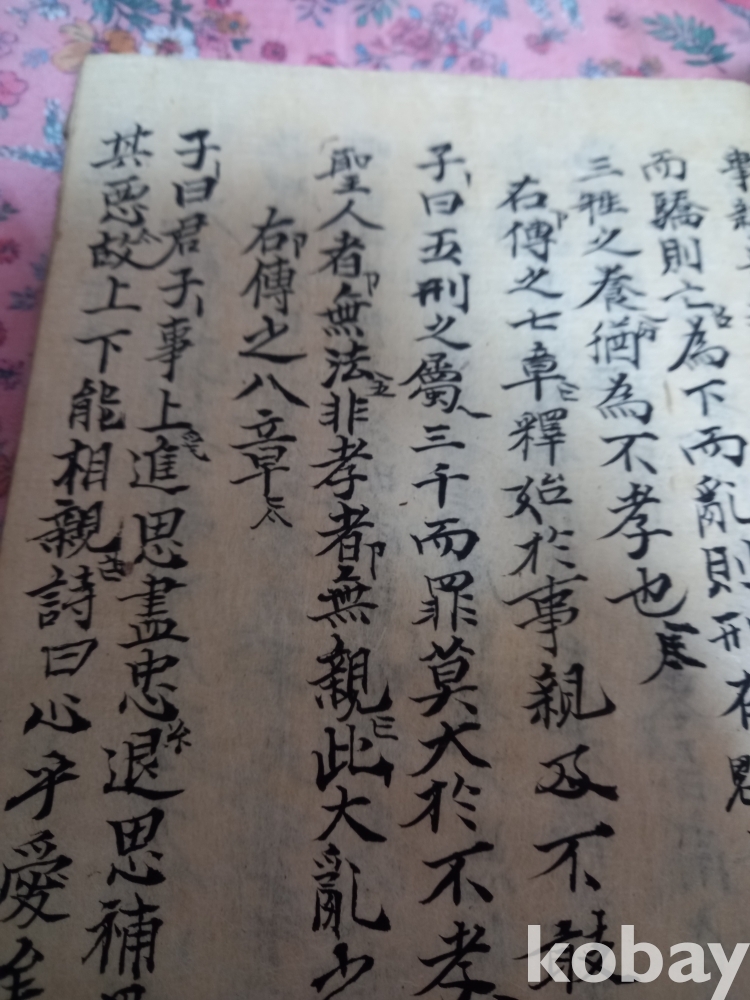 而驕則亡為下而亂則刑在
三牲之養猶為不孝也
右傳之七章釋始於事親及不敢
子曰五刑之屬三千而罪莫大於不孝
聖人者無法非孝者無親此大亂之
右傳之八章
子曰君子事上進思盡忠退思補
其惡故上下能相親詩曰心乎愛
kobay